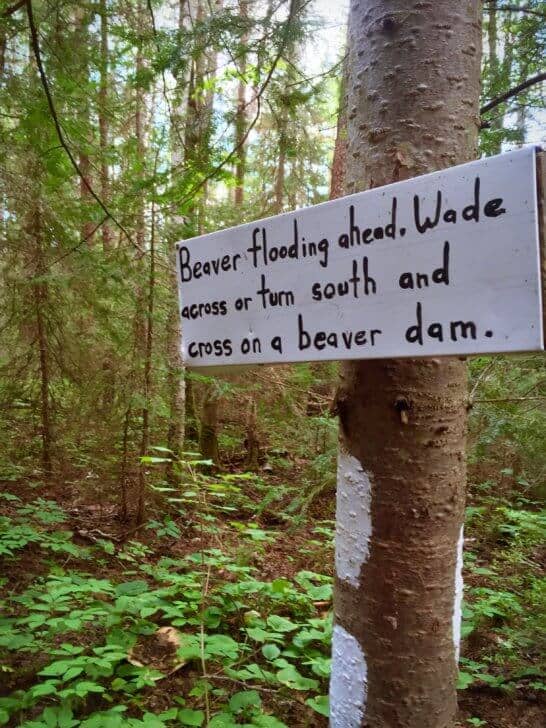 Beaver flooding ahead. Wade
across or turn south and
cross on a beaver dam.